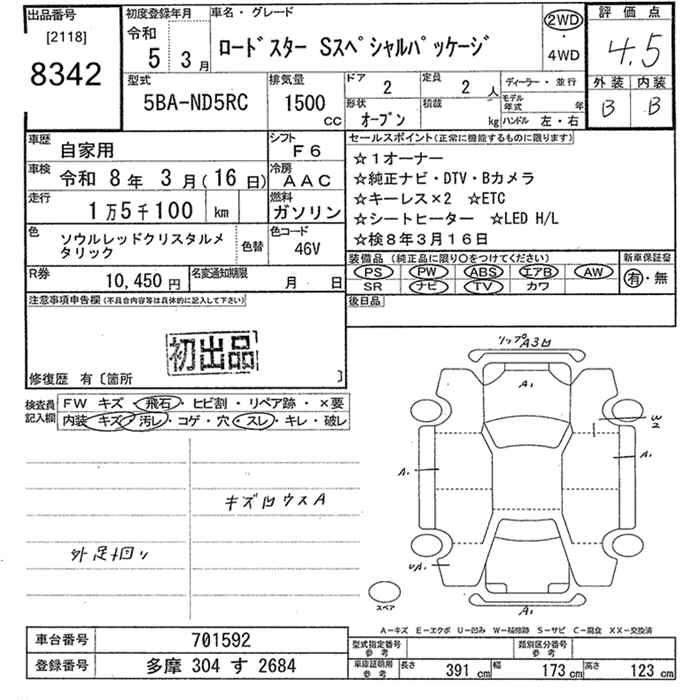 出品番号
[2118]
8342
初度登録年月
令和
5 3月
車名・グレード
ロードスター Sスペシャルパッケージ
2WD
・
4WD
評価点
4.5
外装 内装
B B
型式
5BA-ND5RC
排気量
1500
cc
ドア 2
定員 2 人
形状 オープン
積載 kg
ディーラー・並行
モデル年式 年
ハンドル 左・右
車歴 自家用
シフト F6
車検 令和 8年 3月(16日)
冷房 AAC
走行 1万5千100 km
燃料 ガソリン
色 ソウルレッドクリスタルメタリック
色替
色コード 46V
R券 10,450円
名変通知期限 月 日
セールスポイント(正常に機能するものに限ります)
☆1オーナー
☆純正ナビ・DTV・Bカメラ
☆キーレス×2 ☆ETC
☆シートヒーター ☆LED H/L
☆検8年3月16日
装備品(純正品に限り○をつけてください)
PS PW ABS エアB AW
SR ナビ TV カワ
新車保証書
有・無
後日品
注意事項申告欄(不具合内容等は具体的に記入して下さい)
初出品
修復歴 有〔箇所 〕
検査員記入欄
FW キズ・飛石・ヒビ割・リペア跡・×要
内装 キズ・汚レ・コゲ・穴・スレ・キレ・破レ
キズ凹ウスA
外足廻り
リップA3凹
A1
W2
A1
A1
UA1
A1
スペア
A-キズ E-エクボ U-凹み W-補修跡 S-サビ C-腐食 XX-交換済
車台番号 701592
登録番号 多摩 304 す 2684
型式指定番号 参考
類別区分番号 参考
車庫証明用 参考
長さ 391 cm
幅 173 cm
高さ 123 cm